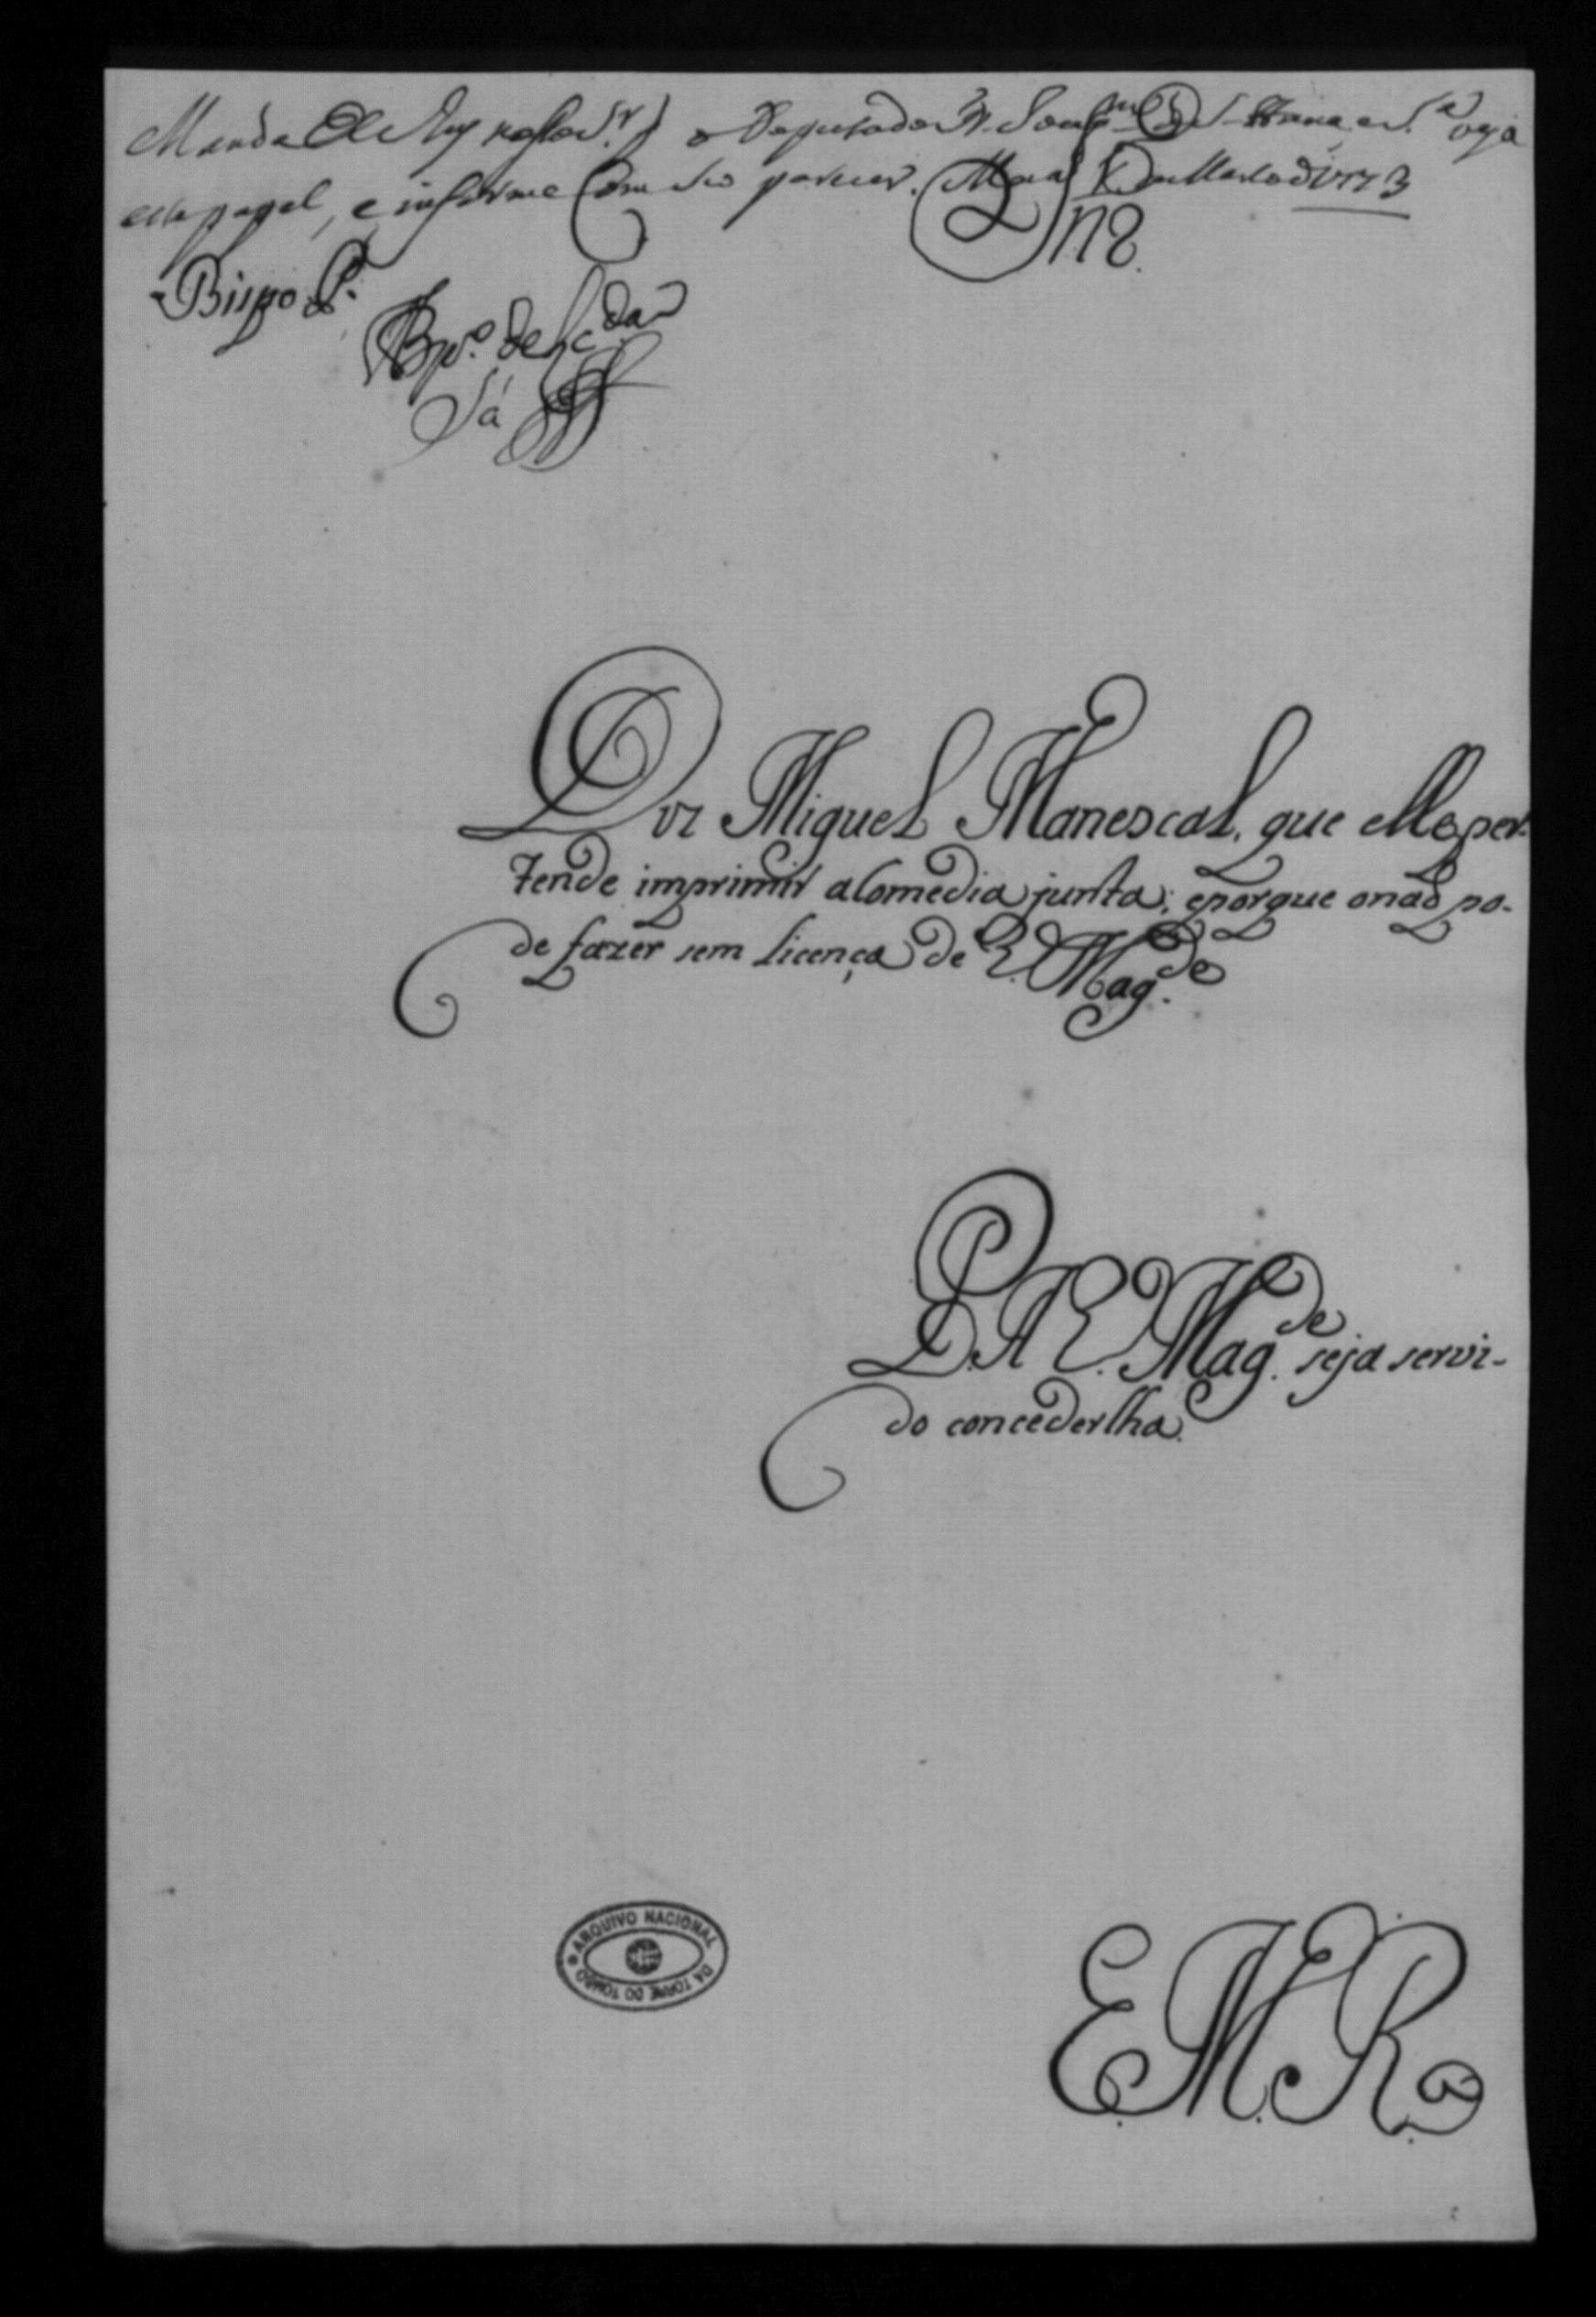 Manda El Rey nosso S.r q o Deputado Fr. Joaq.m de S. Anna e S.a veja
este papel, e informe com seo parecer. Meza de Março de 1773
Bispo P.
Sá
Diz Miguel Manescal, que elle per-
tende imprimir a Comedia junta; e porque o naõ po-
de fazer sem licença de V. Mag.de
P. A V. Mag.de seja servi-
do concederlha.
E. R. M.
ARQUIVO NACIONAL DA TORRE DO TOMBO